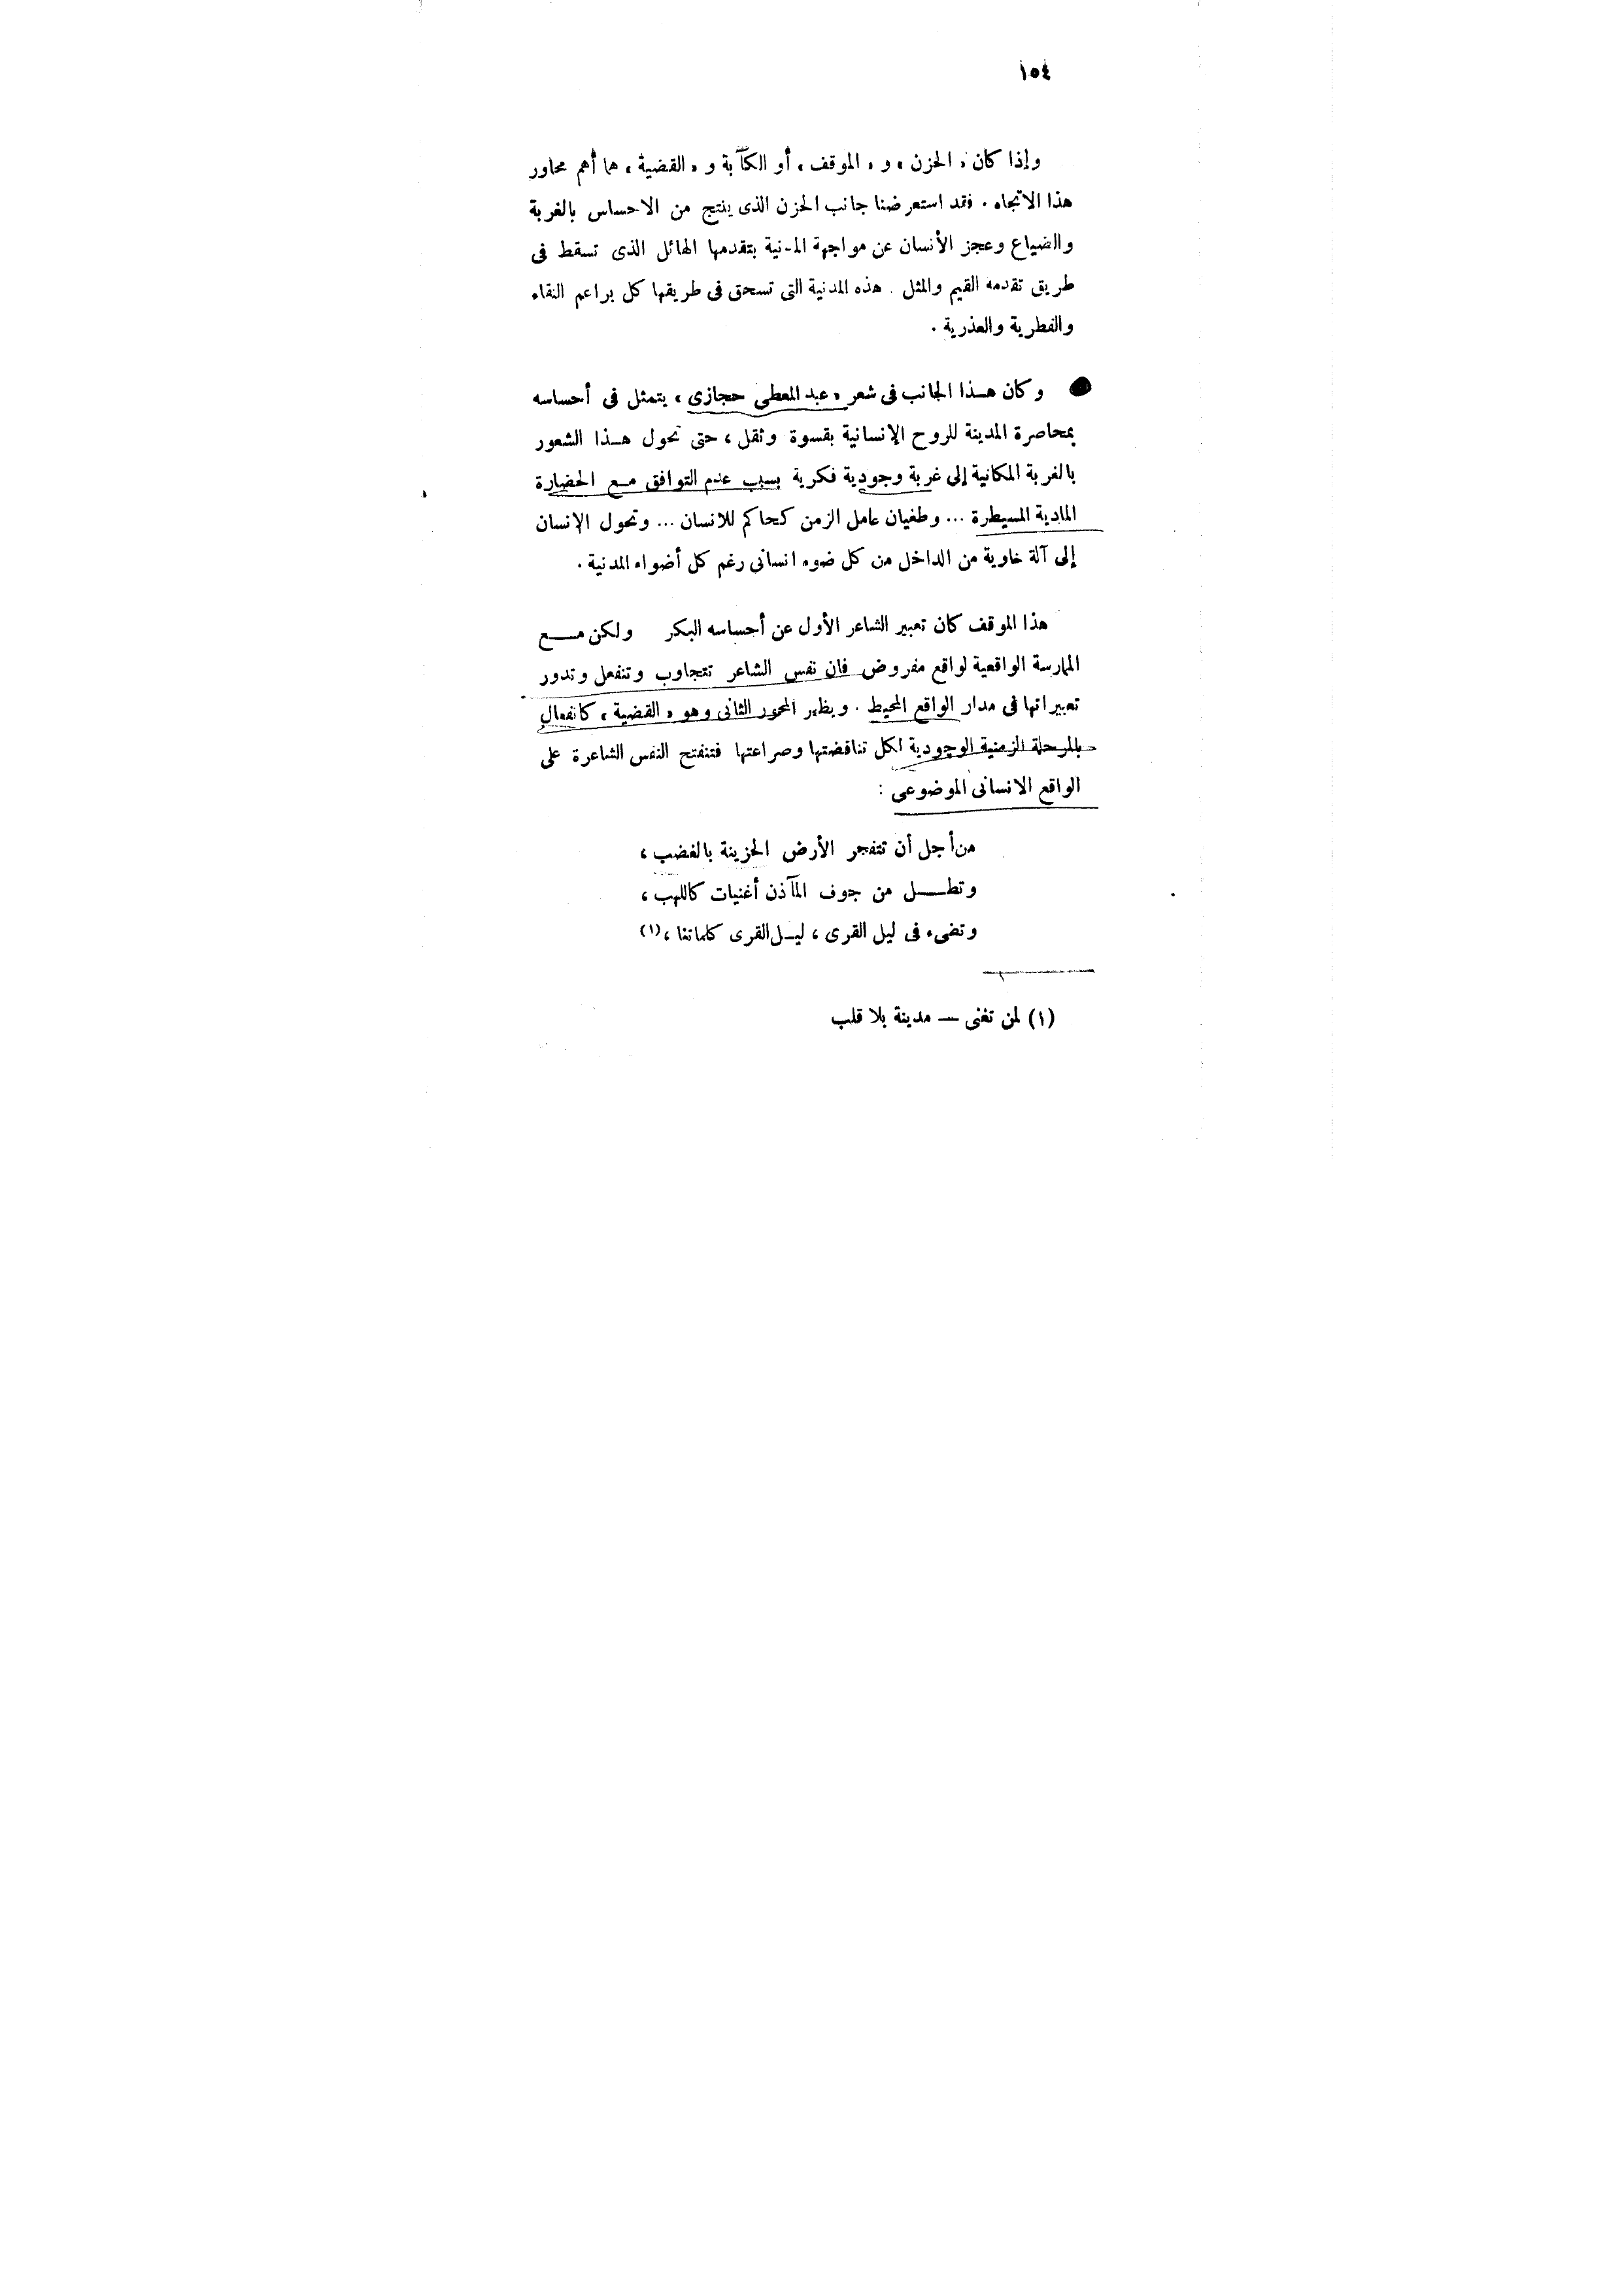 ١٥٤
وإذا كان « الحزن » و « الموقف » أو الكآبة و « القضية » هما أهم محاور
هذا الاتجاه . فقد استعرضنا جانب الحزن الذى ينتج من الاحساس بالغربة
والضياع وعجز الأنسان عن مواجهة المدنية بتقدمها الهائل الذى تسقط فى
طريق تقدمه القيم والمثل . هذه المدنية التى تسحق فى طريقها كل براعم النقاء
والفطرية والعذرية .
وكان هذا الجانب فى شعر « عبد المعطى حجازى » يتمثل فى أحساسه
بمحاصرة المدينة للروح الإنسانية بقسوة وثقل ، حتى تحول هذا الشعور
بالغربة المكانية إلى غربة وجودية فكرية بسبب عدم التوافق مع الحضارة
المادية المسيطرة ... وطغيان عامل الزمن كحاكم للانسان ... وتحول الإنسان
إلى آلة خاوية من الداخل من كل ضوء انسانى رغم كل أضواء المدنية .
هذا الموقف كان تعبير الشاعر الأول عن أحساسه البكر ولكن مع
الممارسة الواقعية لواقع مفروض فان نفس الشاعر تتجاوب وتنفعل وتدور
تعبيراتها فى مدار الواقع المحيط . ويظهر المحور الثانى وهو « القضية » كانفعال
بالمرحلة الزمنية الوجودية لكل تناقضتها وصراعتها فتنفتح النفس الشاعرة على
الواقع الانسانى الموضوعى :
من أجل أن تتفجر الأرض الحزينة بالغضب ،
وتطل من جوف المآذن أغنيات كاللهب ،
وتضىء فى ليل القرى ، ليل القرى كلماتنا ،(١)
(١) لمن تغنى — مدينة بلا قلب